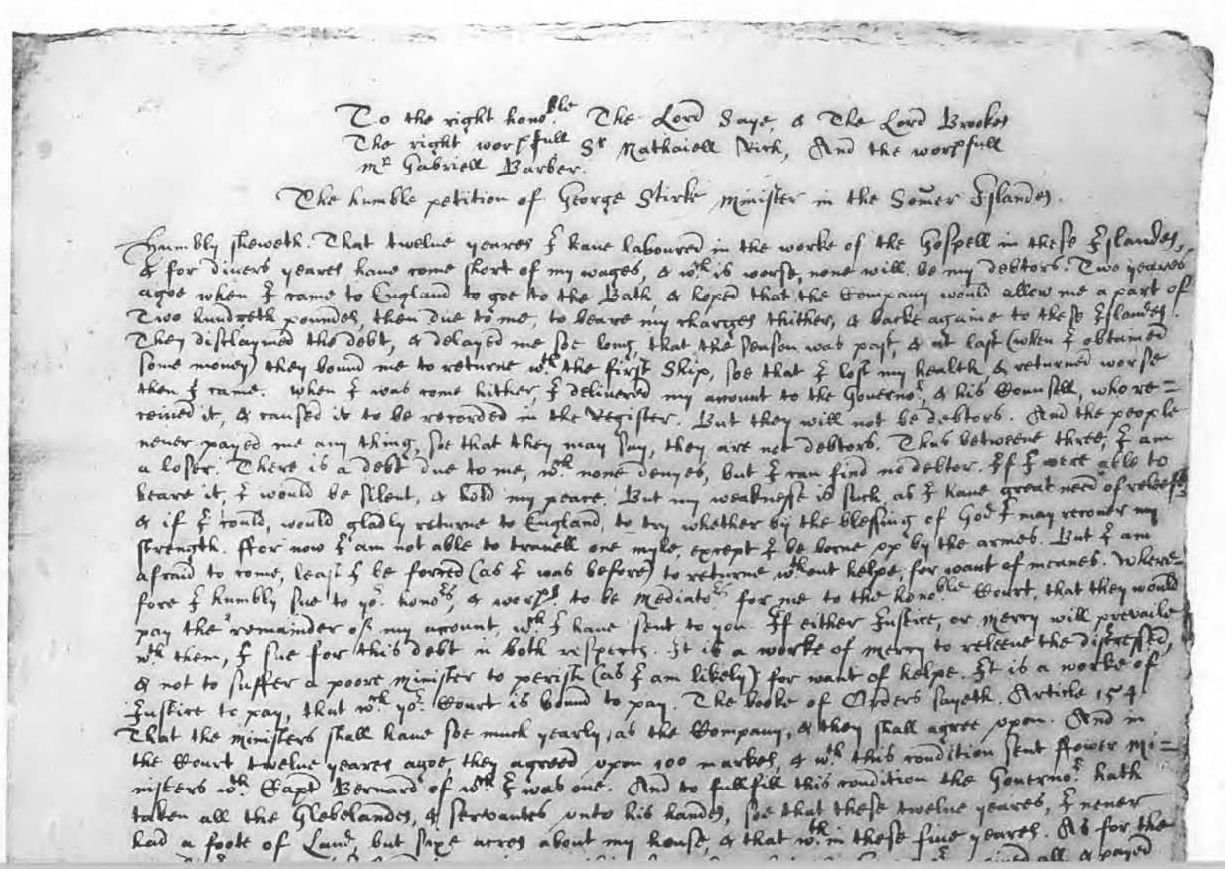 To the right hono.ble The Lord Saye, & The Lord Brookes
The right worp.full Sr Nathaniell Rich, And the worp.full
mr Gabriell Barber.
The humble petition of George Stirke Minister in the Somer Islandes.
Humbly sheweth. That twelve yeares I have laboured in the worke of the Gospell in these Islandes,
& for divers yeares have come short of my wages, & wch is worse, none will be my debtors. Two yeares
agoe when I came to England to goe to the Bath, & hoped that the Company would allow me a part of
Two hundreth poundes, then due to me, to beare my charges thither, & backe againe to these Islandes.
They disclaymed the debt, & delayed me soe long, that the season was past, & at last (when I obtained
some money) they bound me to returne wth the first Ship, soe that I lost my health & returned worse
then I came. When I was come hither, I delivered my account to the Governor, & his Counsell, who re=
ceived it, & caused it to be recorded in the Register. But they will not be debtors. And the people
never payed me any thing, soe that they may say, they are not debtors. Thus betweene three, I am
a loser. There is a debt due to me, wch none denyes, but I can find no debtor. If I were able to
beare it, I would be silent, & hold my peace. But my weaknesse is such, as I have great need of releefe
& if I could, would gladly returne to England, to try whether by the blessing of God I may recover my
strength. ffor now I am not able to travell one myle, except I be borne up by the armes. But I am
afraid to come, least I be forced (as I was before) to returne wthout helpe, for want of meanes. Where=
fore I humbly sue to yor. honors, & worps to be Mediators for me to the hono.ble Court, that they would
pay the remainder of my account, wch I have sent to you. If either Justice, or mercy will prevaile
wth them, I sue for this debt in both respects. It is a worke of mercy to releeve the distressed,
& not to suffer a poore minister to perish (as I am likely) for want of helpe. It is a worke of
Justice to pay, that wch yor. Court is bound to pay. The booke of Orders sayeth. Article 154.
That the ministers shall have soe much yearly, as the Company, & they shall agree upon. And in
the Court twelve yeares agoe, they agreed upon 100 markes, & wth this condition sent ffower Mi=
nisters wth Capt Bernard of wch I was one. And to fullfill this condition the Governor. hath
taken all the Glebelandes, & servantes unto his handes, soe that these twelve yeares, I never
had a foote of Land, but sixe acres about my house, & that wth.in these five yeares. As for the
all & payed